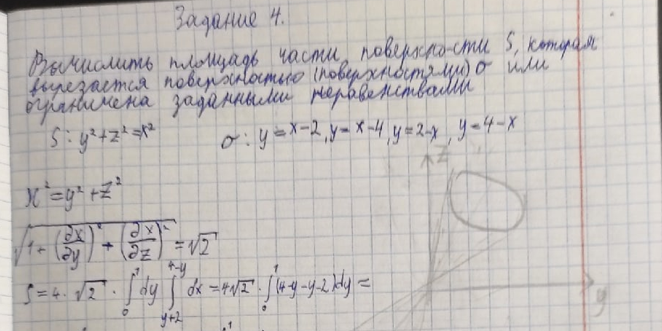 Задание 4.
Вычислить площадь части поверхности S, которая
вырезается поверхностью (поверхностями) σ или
ограничена заданными неравенствами
S: y²+z²=x² σ: y=x-2, y=x-4, y=2-x, y=4-x
x²=y²+z²
√(1+(∂x/∂y)²+(∂x/∂z)²)=√2
S=4·√2·∫₀¹dy∫_{y+2}^{4-y}dx=4√2·∫₀¹(4-y-y-2)dy=
z
y